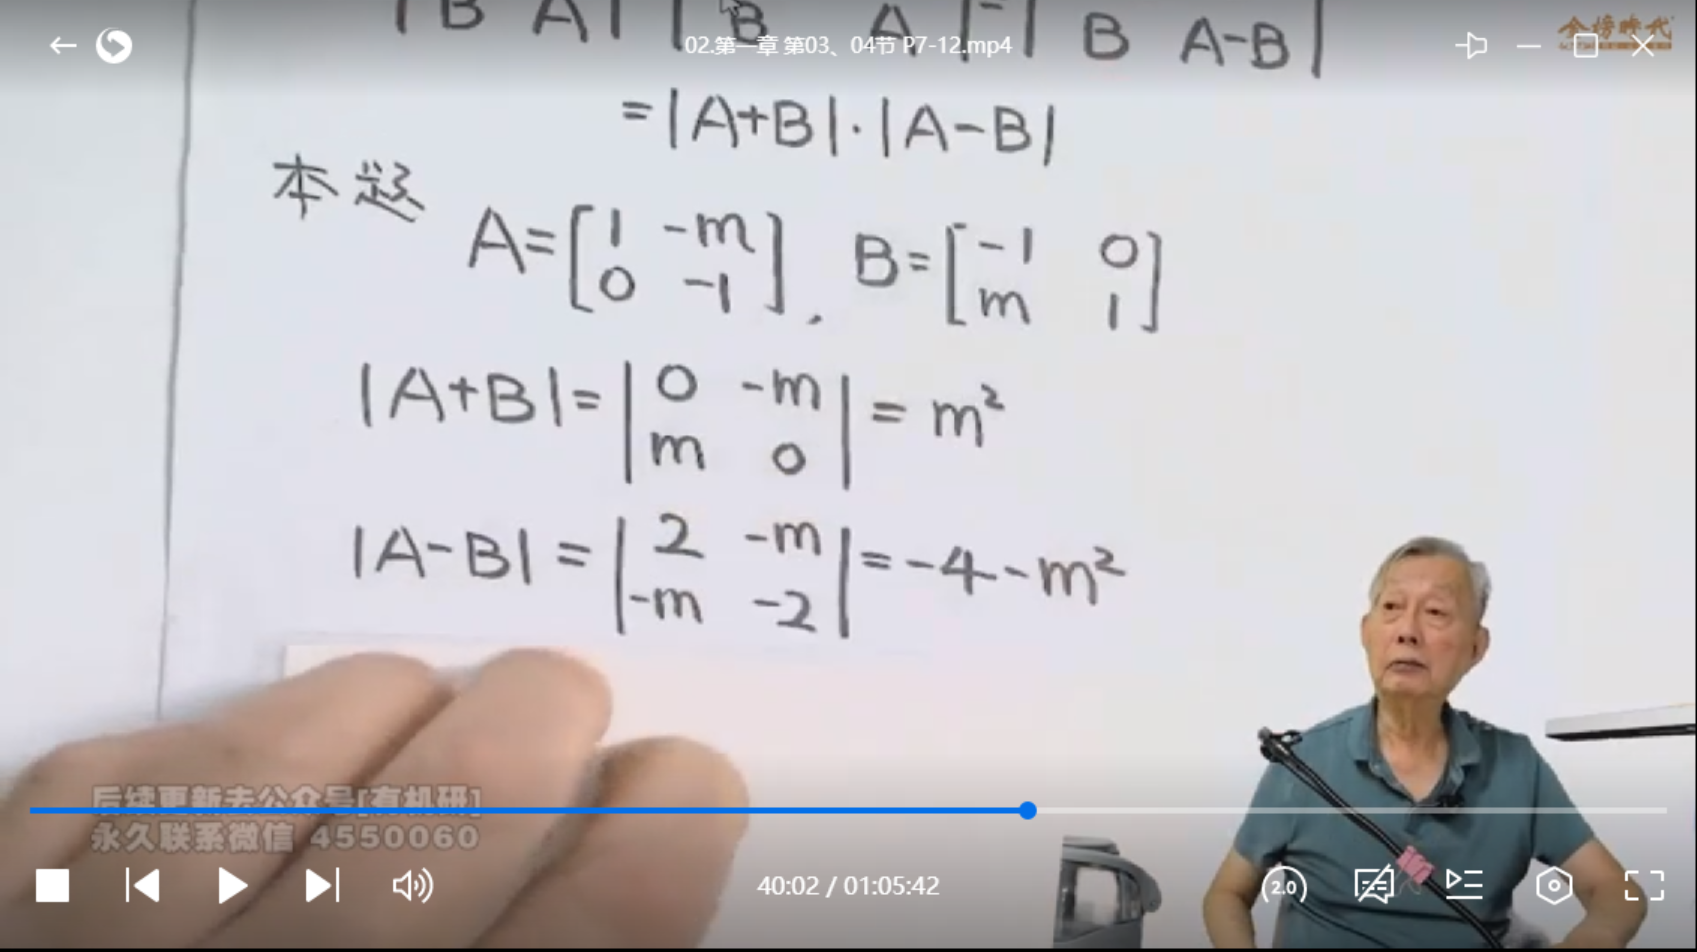 |B A| |B A| = |B A-B|
02.第一章 第03、04节 P7-12.mp4
金榜时代
=|A+B|·|A-B|
本题
A=[1 -m
0 -1], B=[-1 0
m 1]
|A+B|=|0 -m
m 0|= m²
|A-B|=|2 -m
-m -2|=-4-m²
后续更新去公众号[有机研]
永久联系微信 4550060
40:02 / 01:05:42
2.0